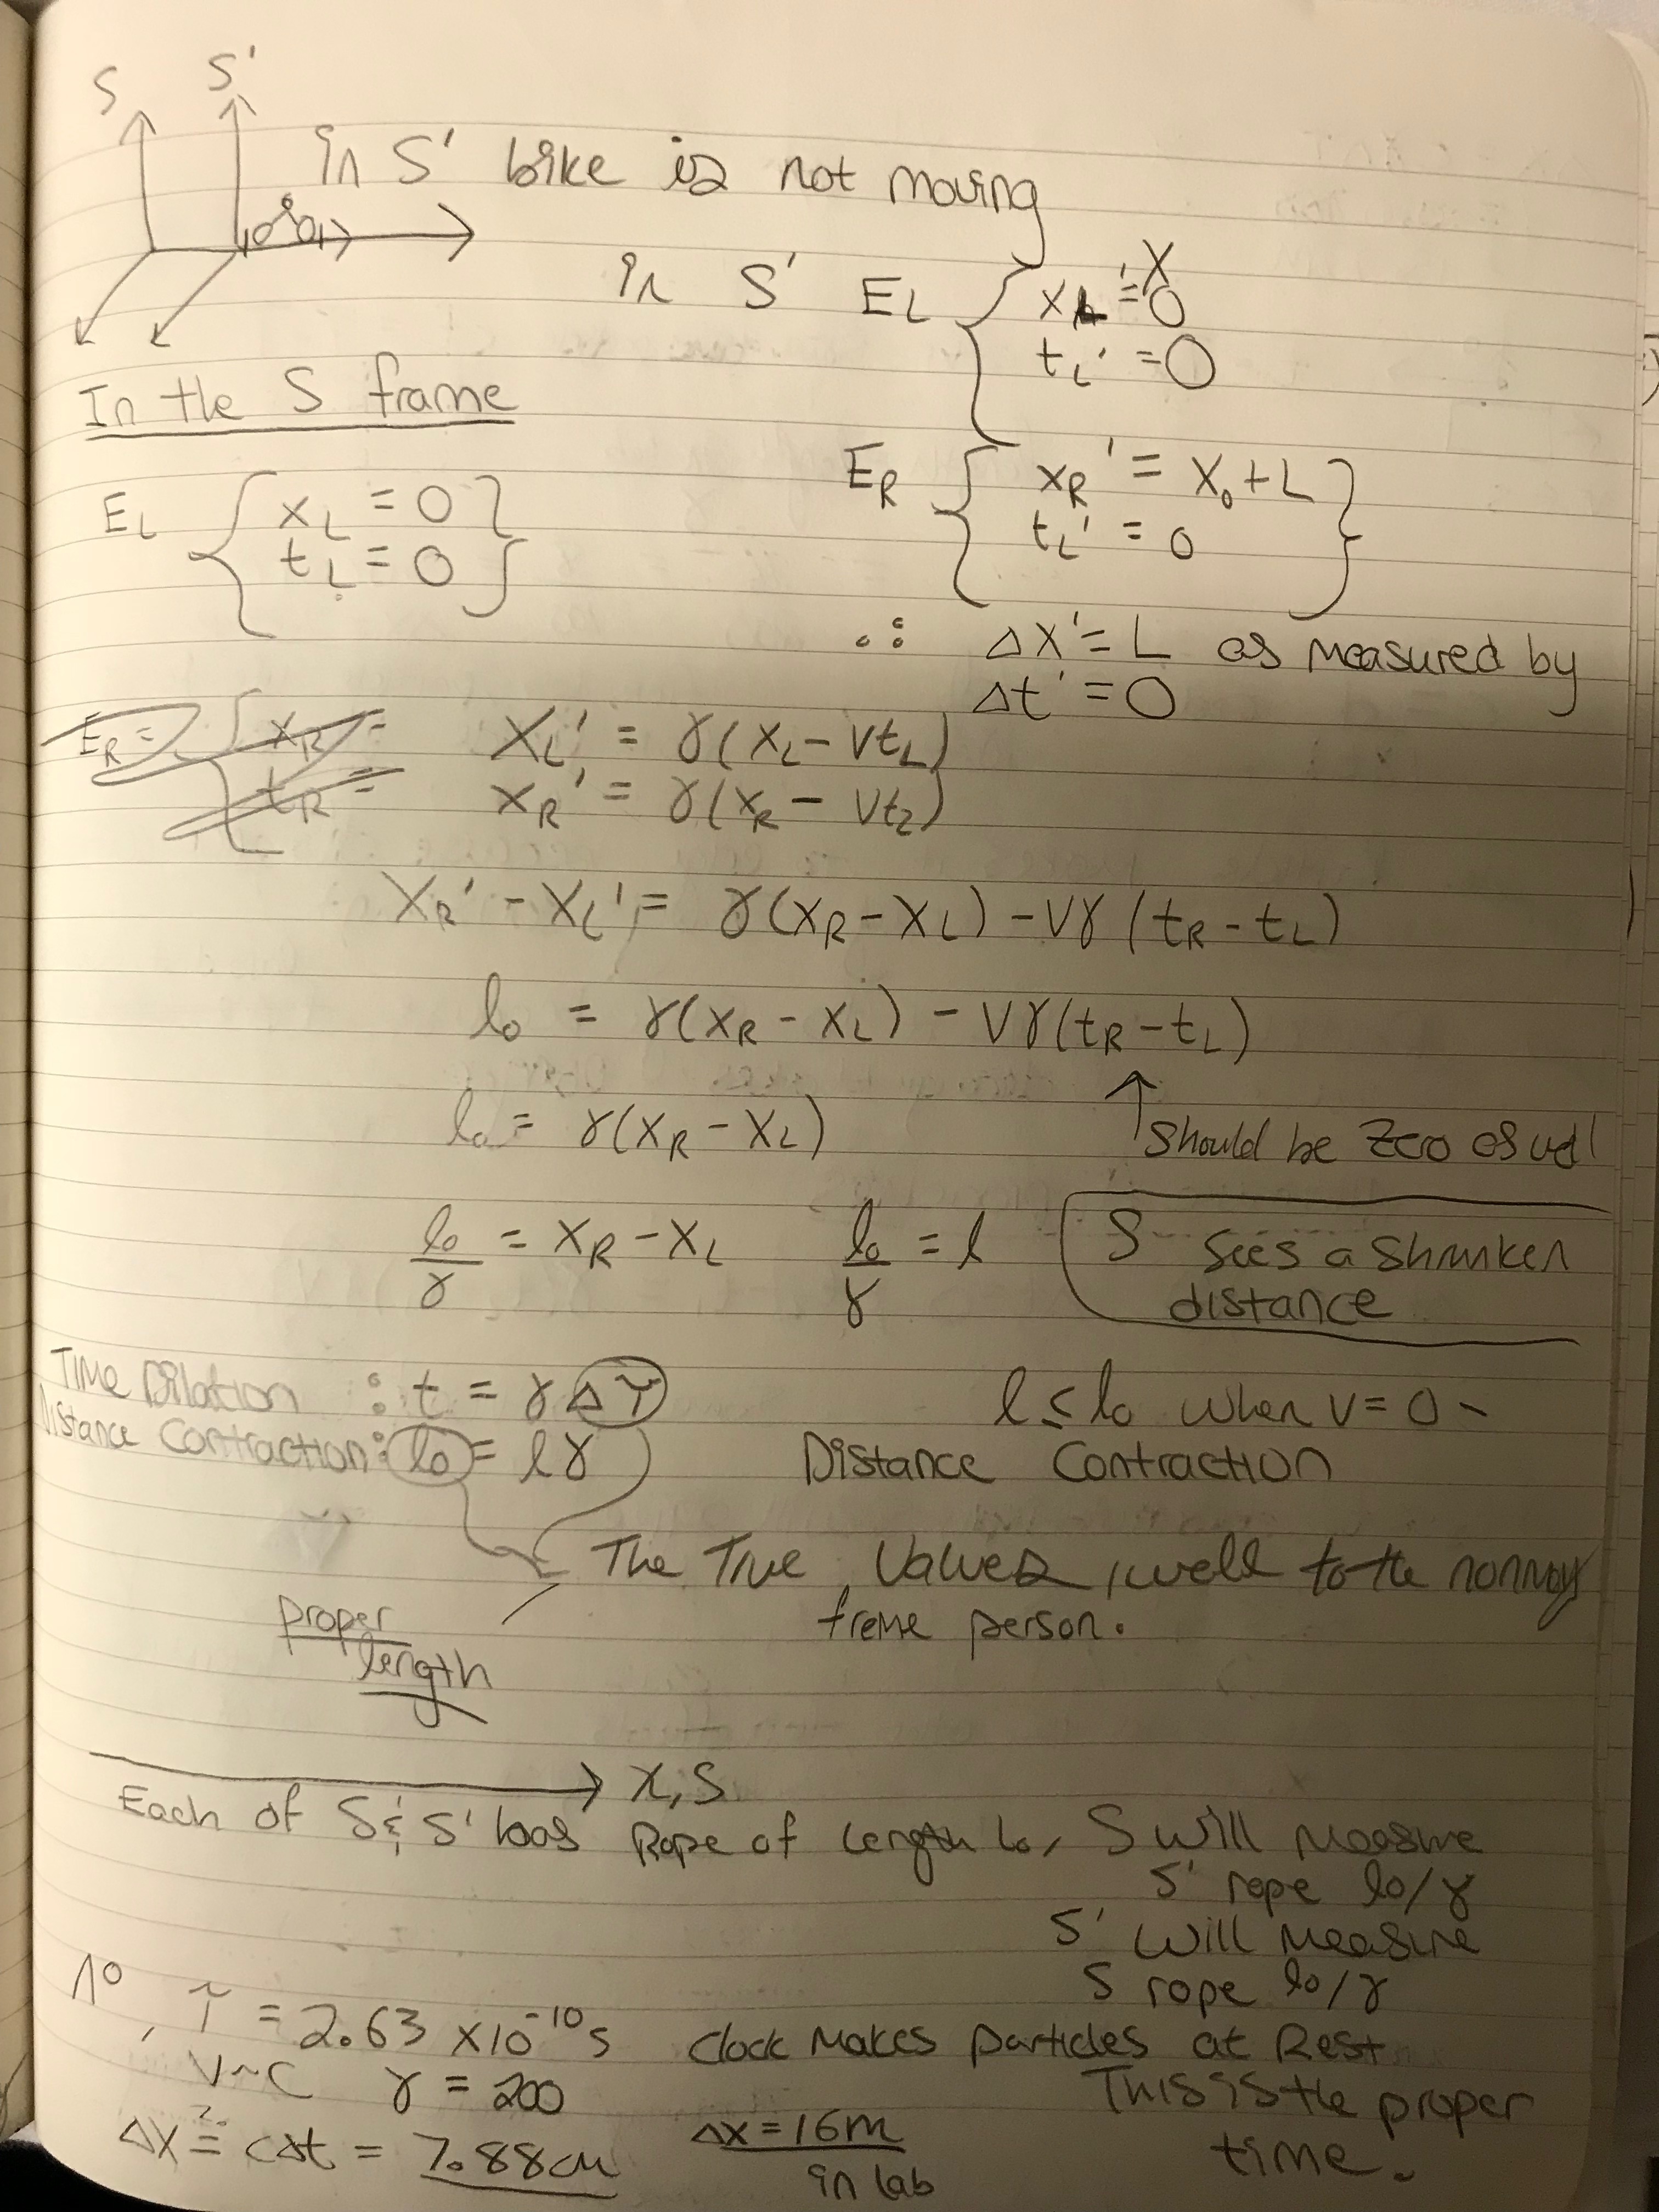 S S'
in S' bike is not moving
in S' E_L { x_L' = 0 X
t_L' = 0
In the S frame
E_R { x_R' = X_0 + L }
t_L' = 0
E_L { x_L = 0 }
t_L = 0
∴ Δx' = L as measured by
Δt' = 0
E_R = { x_R =
t_R =
X_L' = γ(x_L - vt_L)
x_R' = γ(x_R - vt_2)
X_R' - X_L' = γ(x_R - x_L) - vγ(t_R - t_L)
l_0 = γ(x_R - x_L) - vγ(t_R - t_L)
l_0 = γ(x_R - x_L) ↑ should be zero
l_0/γ = x_R - x_L l_0/γ = l S sees a shrunken
distance
Time Dilation : t = γΔT l ≤ l_0 when v = 0
Distance Contraction: l_0 = lγ Distance Contraction
The True Values, well to the
frame person.
proper
length
→ x, S
Each of S & S' has Rope of Length l_0, S will measure
S' rope l_0/γ
S' will measure
S rope l_0/γ
Λ⁰, τ = 2.63 x10^-10 s Clock Makes particles at Rest
v~c γ = 200 This is the proper
time.
Δx ?= cΔt = 7.88cm Δx = 16m
in lab